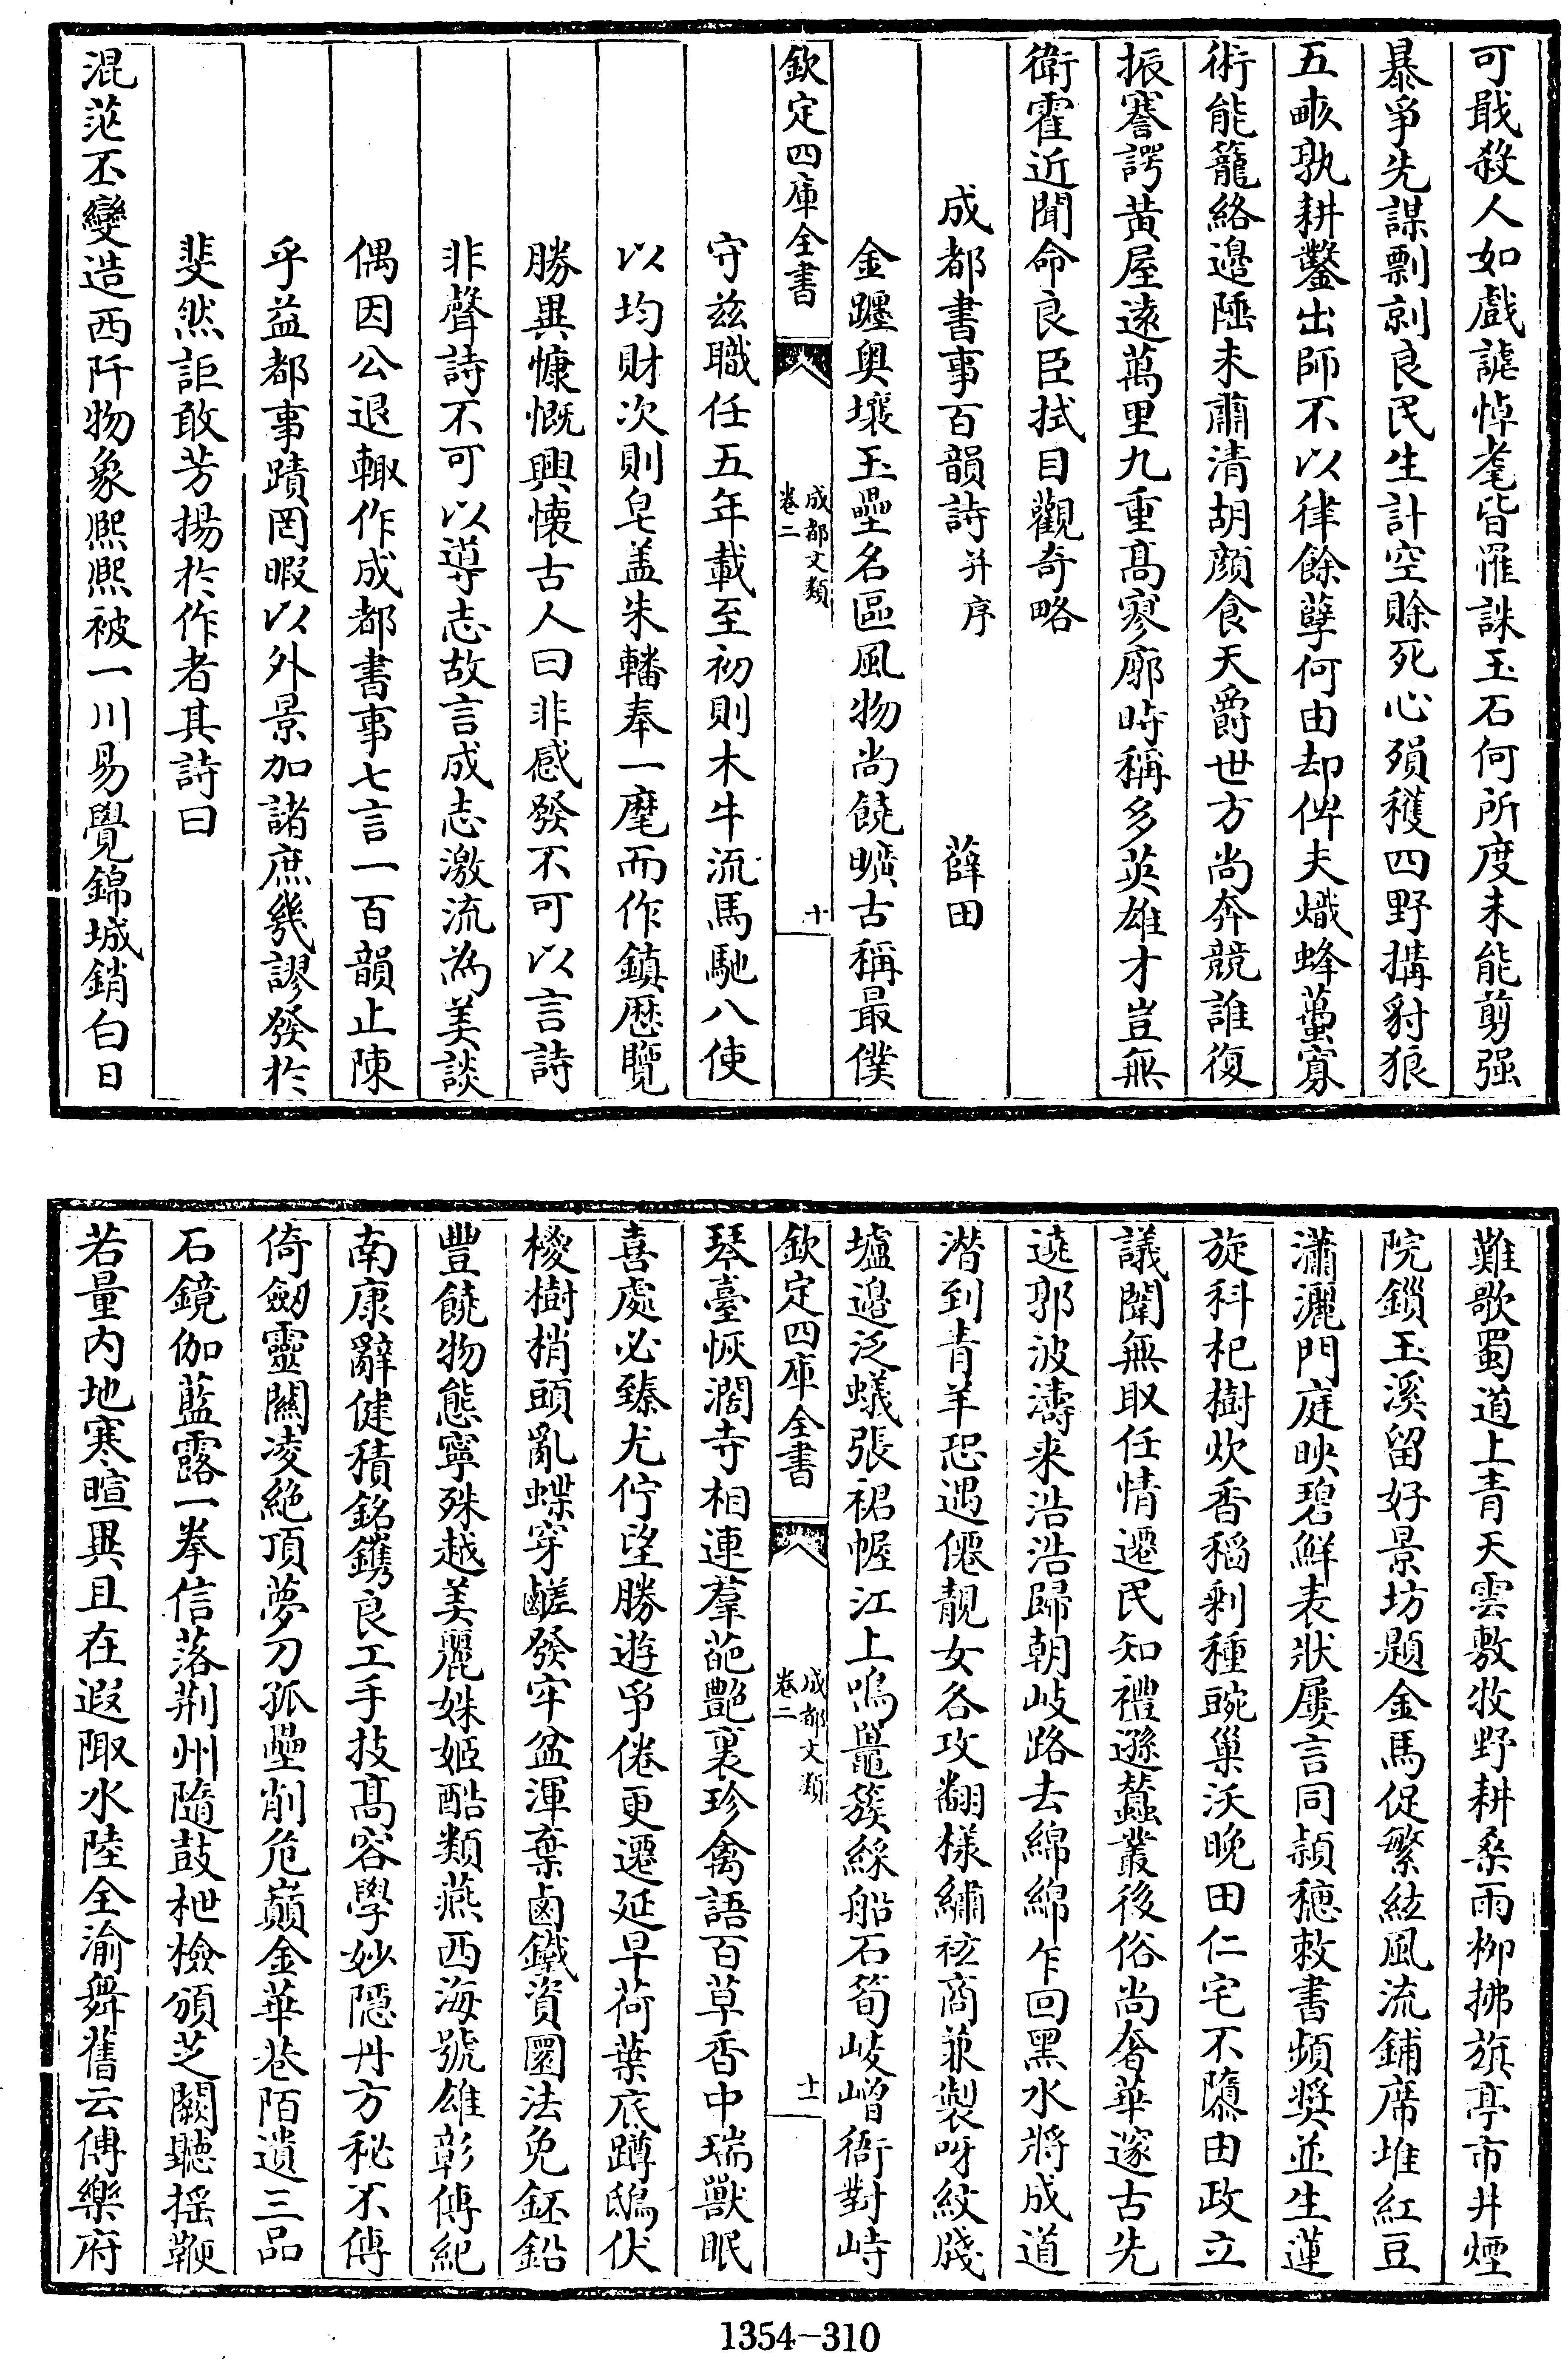 可戢殺人如戲謔悼耄皆罹誅玉石何所度未能剪强
暴爭先謀剽剠良民生計空賖死心殞穫四野搆豺狼
五畝孰耕鑿出師不以律餘孽何由却俾夫熾蜂蠆寡
術能籠絡邉陲未肅清胡顔食天爵世方尚奔競誰復
振謇諤黄屋逺萬里九重髙寥廓時稱多英雄才豈無
衛霍近聞命良臣拭目觀奇略
成都書事百韻詩并序　薛田
金躔奥壤玉壘名區風物尚饒曠古稱最僕
欽定四庫全書
成都文類
卷二
十
守兹職任五年載至初則木牛流馬馳八使
以均財次則皂盖朱轓奉一麾而作鎮歴覽
勝異慷慨興懐古人曰非感發不可以言詩
非聲詩不可以導志故言成志激流為美談
偶因公退輙作成都書事七言一百韻止陳
乎益都事蹟罔暇以外景加諸庶幾謬發於
斐然詎敢芳揚於作者其詩曰
混茫丕變造西阡物象熈熈被一川易覺錦城銷白日
難歌蜀道上青天雲敷牧野耕桑雨柳拂旗亭市井煙
院鎻玉溪留好景坊題金馬促繁絃風流鋪席堆紅豆
瀟灑門庭映碧鮮表狀屢言同頴穂敕書頻奬並生蓮
旋科杞樹炊香稻剰種豌巢沃晚田仁宅不隳由政立
議闈無取任情遷民知禮遜蠶叢後俗尚奢華邃古先
遶郭波濤来浩浩歸朝岐路去綿綿乍回黒水將成道
潛到青羊恐遇僊靚女各攻翻様繡袨商兼製呀紋牋
壚邉泛蟻張裙幄江上鳴鼉簇綵船石筍崚嶒衙對峙
欽定四庫全書
成都文類
卷二
十一
琴臺恢濶寺相連羣葩艶裏珍禽語百草香中瑞獸眠
喜處必臻尤佇望勝遊争倦更遷延早荷葉底蹲鴟伏
椶樹梢頭亂蝶穿鹺發牢盆渾棄鹵鐵資圜法免鈈鉛
豐饒物態寧殊越美麗姝姬酷類燕西海號雄彰傳紀
南康辭健積銘鐫良工手技髙容學妙隠丹方秘不傳
倚劔靈關凌絶頂夢刀孤壘削危巔金華巷陌遺三品
石鏡伽藍露一拳信落荆州隨鼓枻檢頒芝闕聽揺鞭
若量内地寒暄異且在遐陬水陸全渝舞舊云傳樂府
1354-310